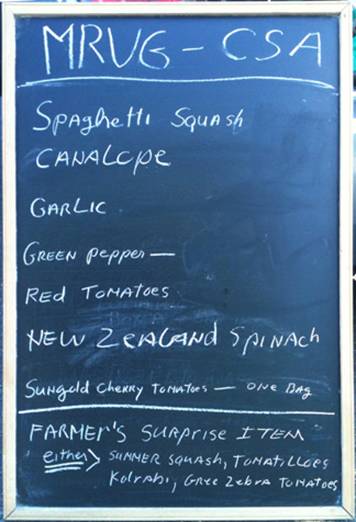 MRUG - CSA
Spaghetti Squash
CANALOPE
GARLIC
GREEN PEPPER —
RED TOMATOES
NEW ZEALAND SPINACH
SUNGOLD CHERRY TOMATOES — ONE BAG
FARMER'S SURPRISE ITEM
either > SUMMER SQUASH, TOMATILLOES
Kolrabi, GREE ZEBRA TOMATOES